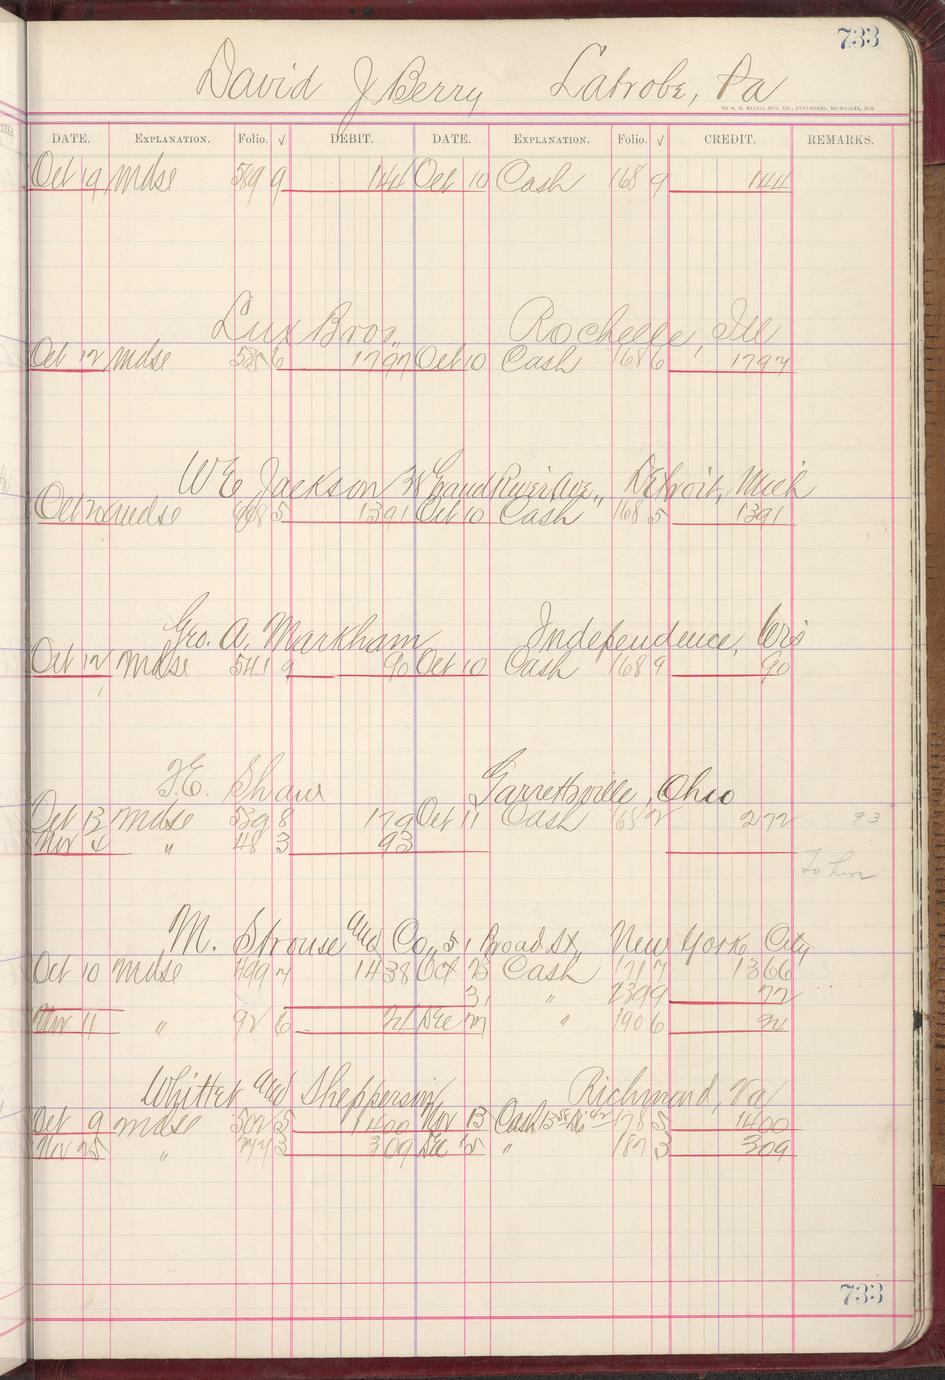 733
David J Berry Latrobe, Pa
DATE. EXPLANATION. Folio. √ DEBIT. DATE. EXPLANATION. Folio. √ CREDIT. REMARKS.
Oct 19 mdse 589 9 144 Oct 10 Cash 168 9 144
Lux Bros. Rochelle, Ill
Oct 12 mdse 535 6 1797 Oct 10 Cash 168 6 1797
W E Jackson Grand River Ave., Detroit, Mich
Oct mdse 5 1391 Oct 10 Cash 168 5 1391
Geo. A. Markham Independence, Wis
Oct 12 Mdse 541 9 90 Oct 10 Cash 168 9 90
F.E. Shaw Garrettsville, Ohio
Oct 13 mdse 539 8 179 Oct 11 Cash 2 272 93
Nov 4 " 48 3 93
To him
M. Strouse and Co., 51 Broad St., New York City
Oct 10 mdse 499 7 1438 Oct Cash 171 7 1366
31 " 239 9 72
Nov 11 " 92 6 24 Dec 7 " 190 6 24
Whittet and Shepperson, Richmond, Va
Oct 9 mdse 502 5 1400 Nov 13 Cash 178 5 1400
Nov 25 " 3 309 Dec 15 " 187 3 309
733